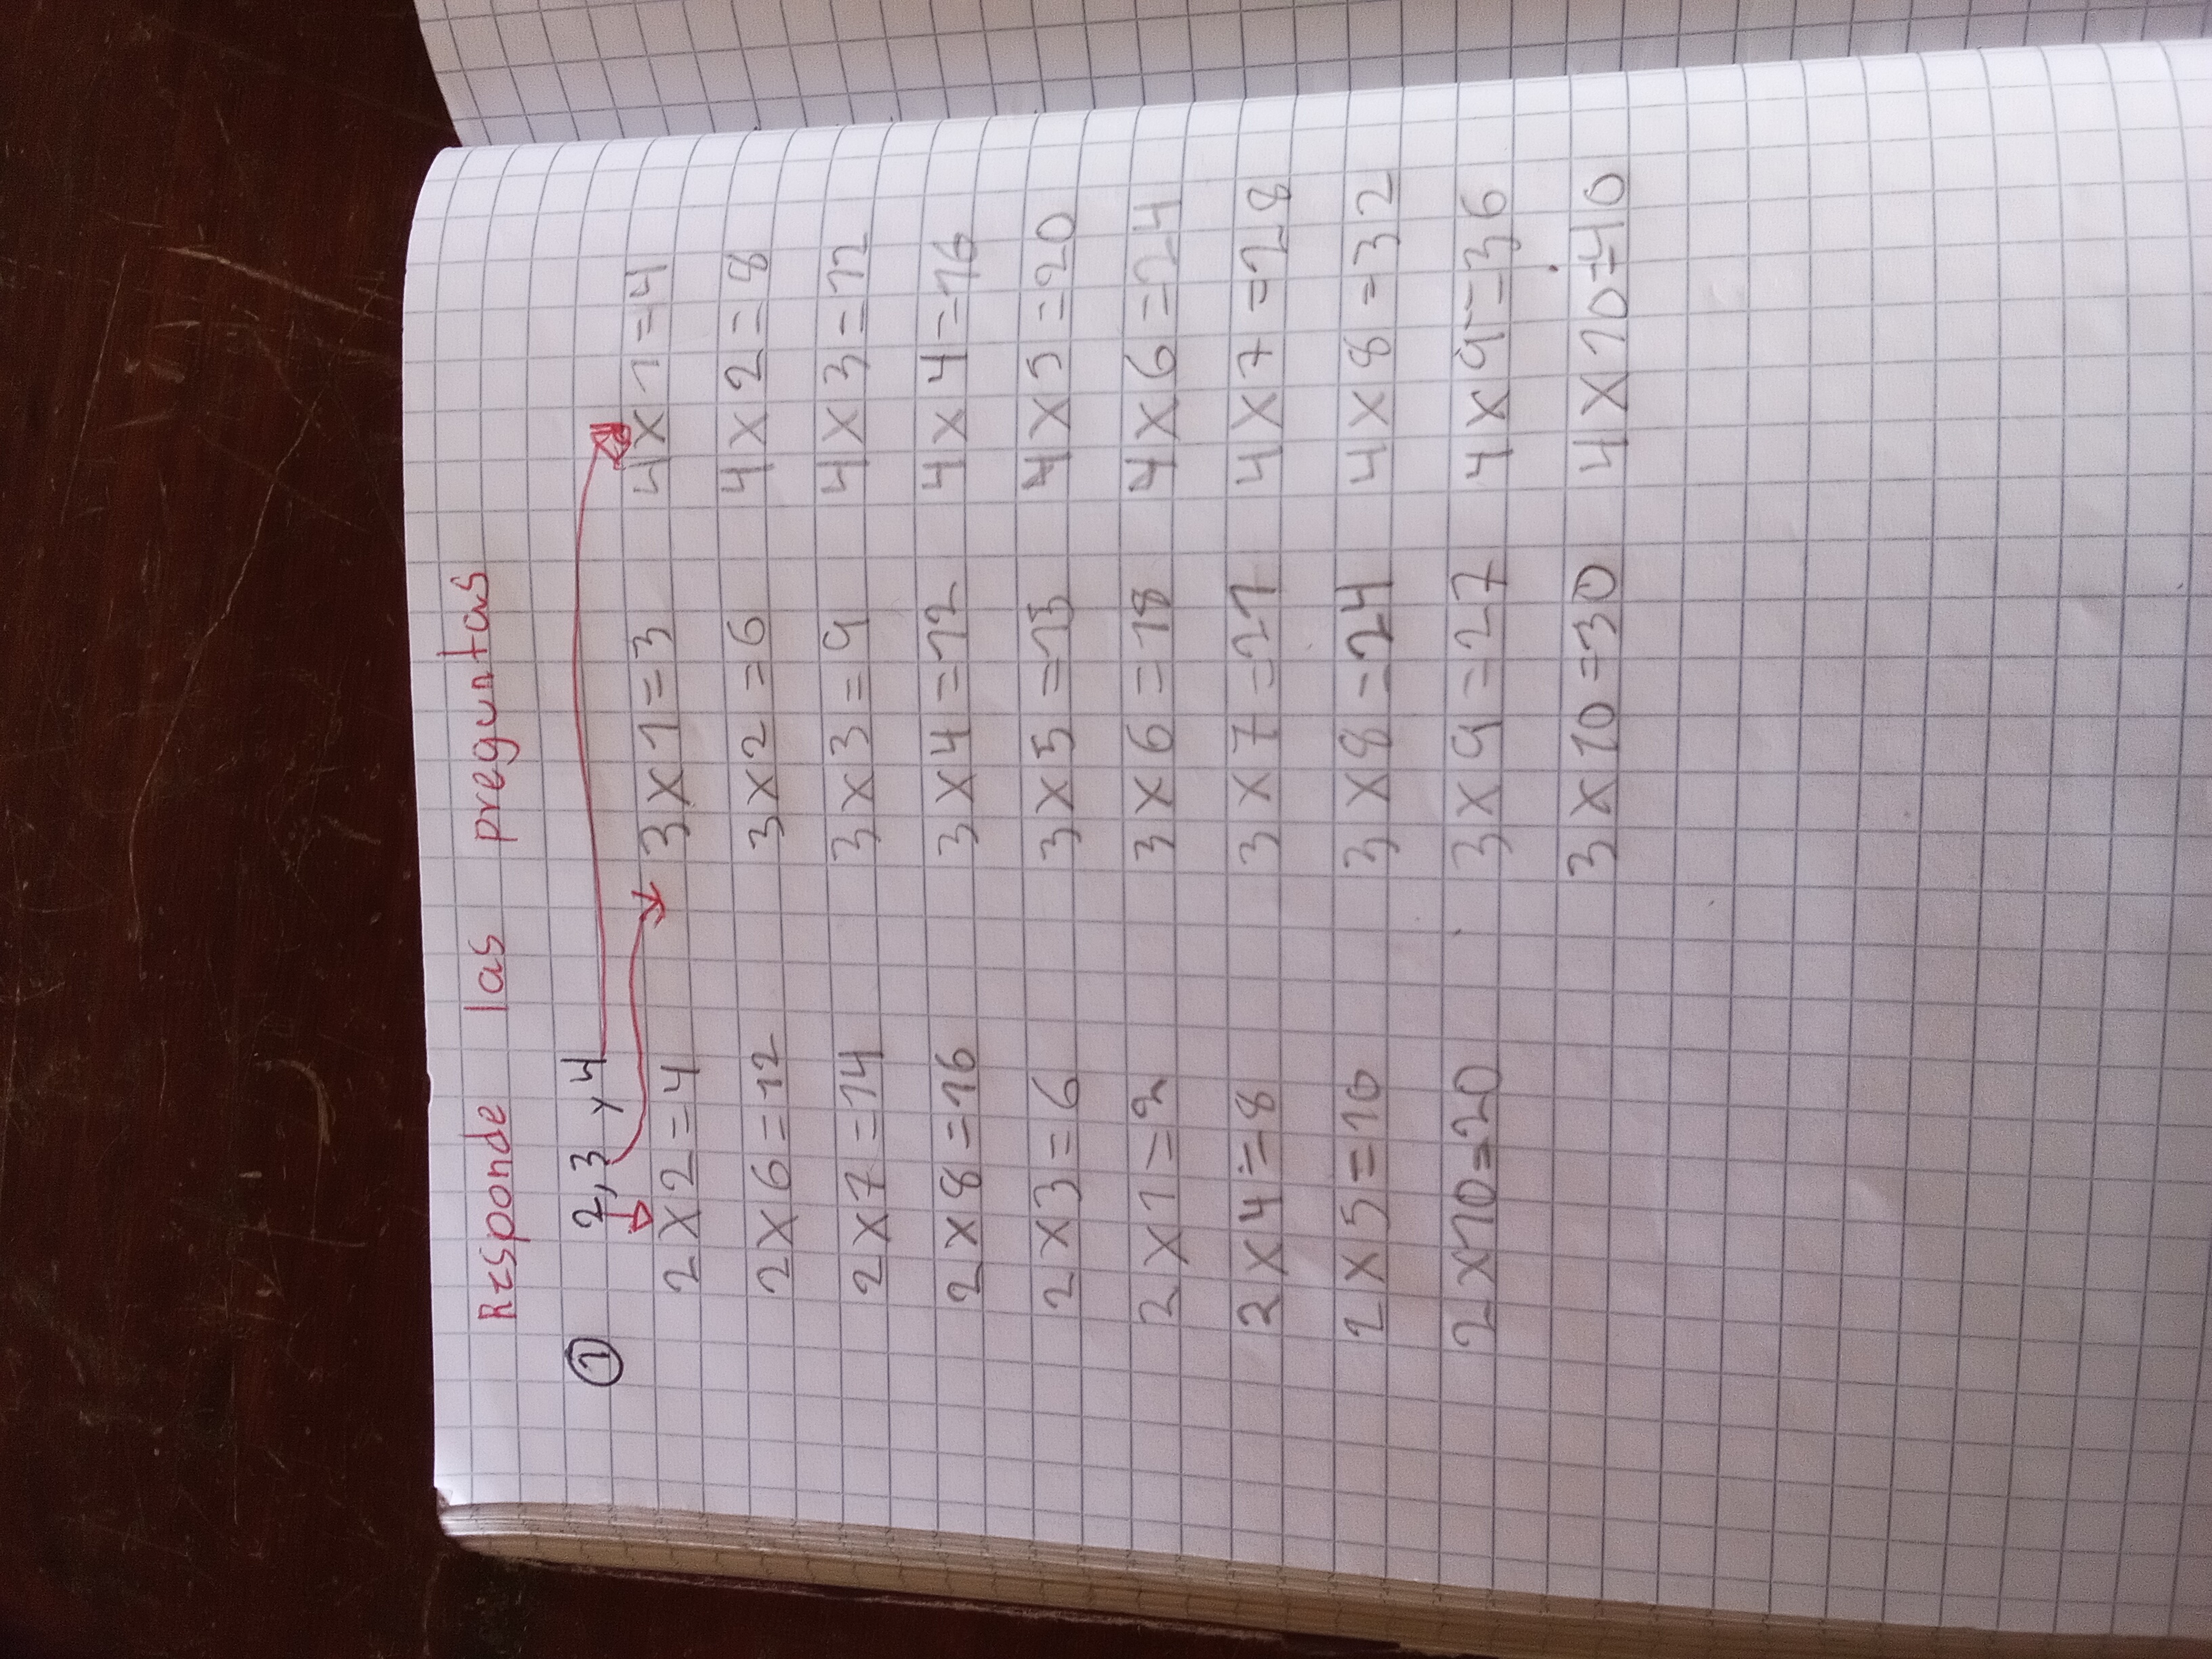 Responde las preguntas
① 2,3 y 4
2x2=4 3x1=3 4x1=4
2x6=12 3x2=6 4x2=8
2x7=14 3x3=9 4x3=12
2x8=16 3x4=12 4x4=16
2x3=6 3x5=15 4x5=20
2x1=2 3x6=18 4x6=24
2x4=8 3x7=21 4x7=28
2x5=10 3x8=24 4x8=32
2x10=20 3x9=27 4x9=36
3x10=30 4x10=40